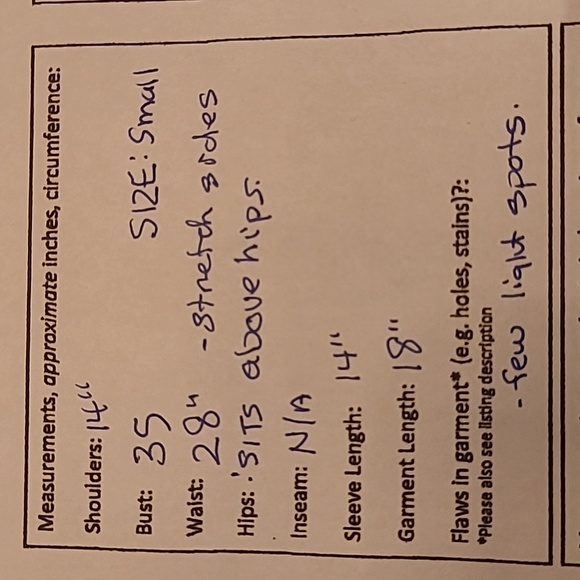 Measurements, approximate inches, circumference:
Shoulders: 14"
Bust: 35 SIZE: Small
Waist: 28" -stretch sides
Hips: 'SITS above hips.
Inseam: N/A
Sleeve Length: 14"
Garment Length: 18"
Flaws in garment* (e.g. holes, stains)?:
*Please also see listing description
-few light spots.